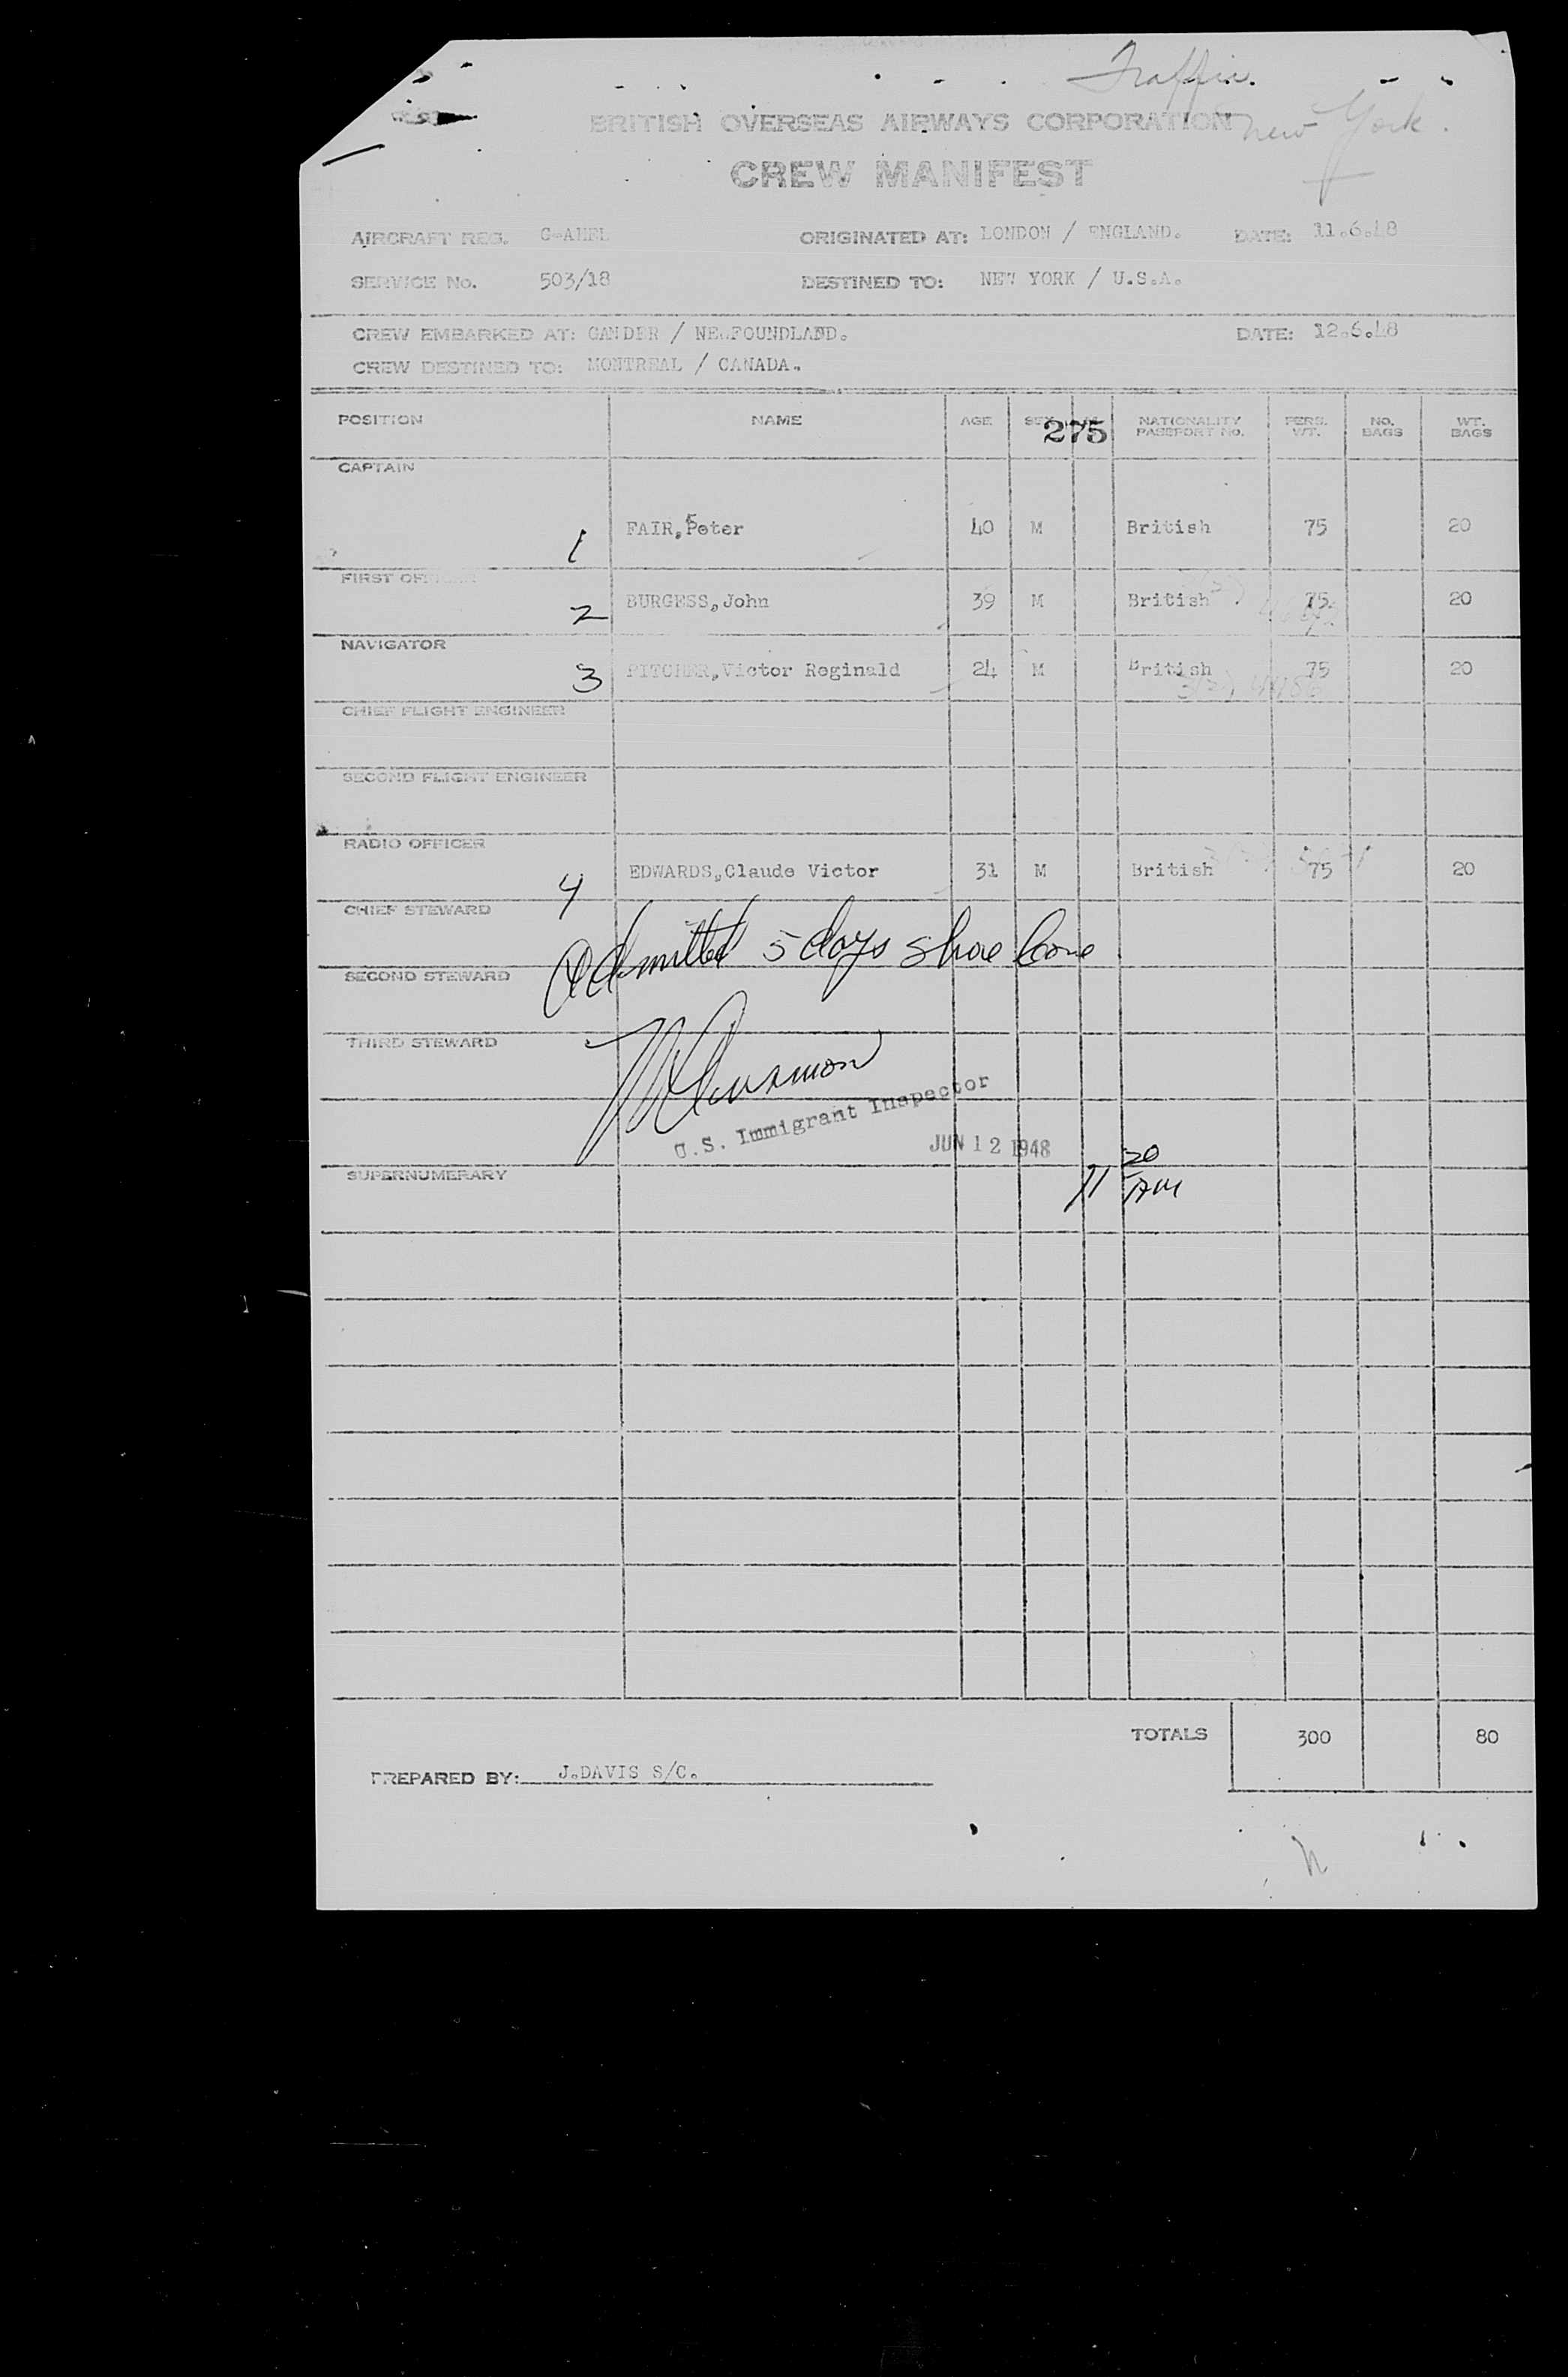 Traffic.
BRITISH OVERSEAS AIRWAYS CORPORATION New York.
CREW MANIFEST
AIRCRAFT REG. ORIGINATED AT: LONDON / ENGLAND. DATE: 11.6.48
SERVICE No. 503/18 DESTINED TO: NEW YORK / U.S.A.
CREW EMBARKED AT: GANDER / NEWFOUNDLAND. DATE: 12.6.48
CREW DESTINED TO: MONTREAL / CANADA.
POSITION NAME AGE SEX 275 NATIONALITY PASSPORT No. PERS. WT. NO. BAGS WT. BAGS
CAPTAIN
1 FAIR, Peter 40 M British 75 20
FIRST OFFICER
2 BURGESS, John 39 M British 75 20
NAVIGATOR
3 PITCHER, Victor Reginald 24 M British 75 20
CHIEF FLIGHT ENGINEER
SECOND FLIGHT ENGINEER
RADIO OFFICER
4 EDWARDS, Claude Victor 31 M British 75 20
CHIEF STEWARD
Admitted 5 days shore leave
SECOND STEWARD
THIRD STEWARD
U.S. Immigrant Inspector
JUN 12 1948
11 20 AM
SUPERNUMERARY
TOTALS 300 80
PREPARED BY: J.DAVIS S/C.